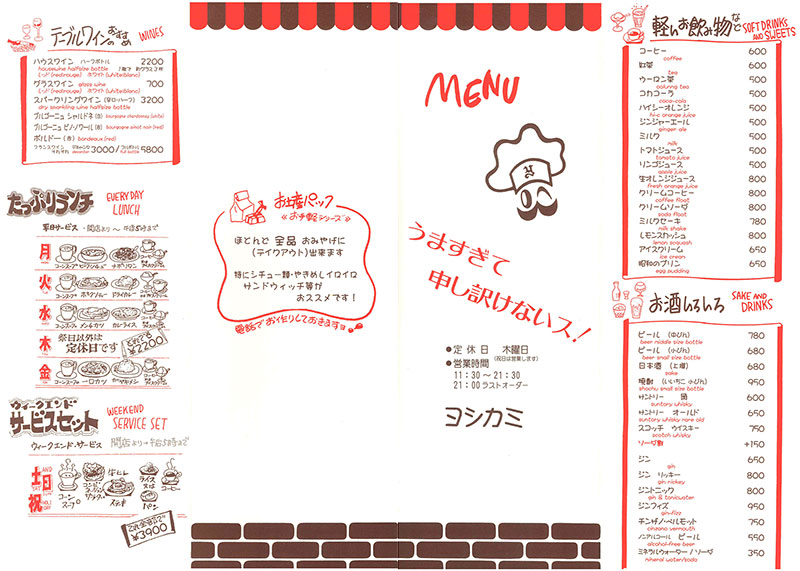 テーブルワインのおすすめ WINES
ハウスワイン ハーフボトル 2200
housewine halfsize bottle
ミッジ(red/rouge) ホワイト(white/blanc)
グラスワイン glass wine 700
(red/rouge) ホワイト(white/blanc)
スパークリングワイン(辛口・ハーフ) 3200
dry sparkling wine halfsize bottle
ブルゴーニュ シャルドネ(白) bourgogne chardonnay(white)
ブルゴーニュ ピノノワール(赤) bourgogne pinot noir(red)
ボルドー(赤) bordeaux(red)
フランスワイン decanter 3000/ full bottle 5800
たっぷりランチ EVERYDAY LUNCH
平日サービス・開店より〜午後5時まで
月
コーンスープ ナポリタン
火
コーンスープ ポークソテー ドライカレー
水
コーンスープ メンチカツ カレーライス
木 祭日以外は定休日です
¥2200
金
コーンスープ 一口カツ
ウィークエンド サービスセット WEEKEND SERVICE SET
ウィークエンド・サービス 開店より→午后5時まで
土 AND 日 祝
コーンスープ
ステーキ
ライス又はパン
コーヒー
¥3900
お土産パック
≪お手軽シリーズ≫
ほとんど 全品 おみやげに
(テイクアウト)出来ます
特にシチュー類・やきめしイロイロ
サンドウィッチ等が
おススメです!
電話でお作りしておきますョ
MENU
うますぎて
申し訳けないス!
●定休日 木曜日
(祝日は営業します)
●営業時間
11:30〜21:30
21:00ラストオーダー
ヨシカミ
軽いお飲み物など SOFT DRINKS AND SWEETS
コーヒー 600
coffee
紅茶 600
tea
ウーロン茶 500
oolung tea
コカコーラ 500
coca-cola
ハイシーオレンジ 500
hi-c orange juice
ジンジャーエール 500
ginger ale
ミルク 500
milk
トマトジュース 500
tomato juice
リンゴジュース 500
apple juice
生オレンジジュース 800
fresh orange juice
クリームコーヒー 800
coffee float
クリームソーダ 800
soda float
ミルクセーキ 780
milk shake
レモンスカッシュ 800
lemon scquash
アイスクリーム 650
ice cream
昭和のプリン 650
egg pudding
お酒いろいろ SAKE AND DRINKS
ビール (中びん) 780
beer middle size bottle
ビール (小びん) 680
beer small size bottle
日本酒 (上撰) 680
sake
焼酎 (いいちこ 小びん) 950
shochu small size bottle
サントリー 角 600
suntory whisky
サントリー オールド 650
suntory whisky rare old
スコッチ ウイスキー 750
scotch whisky
ソーダ割 +150
ジン 650
gin
ジン リッキー 800
gin rickey
ジントニック 800
gin & tonicwater
ジンフィズ 950
gin-fizz
チンザノ・ベルモット 750
cinzano vermouth
ノンアルコール ビール 550
alcohol-free beer
ミネラルウォーター/ソーダ 350
mineral water/soda